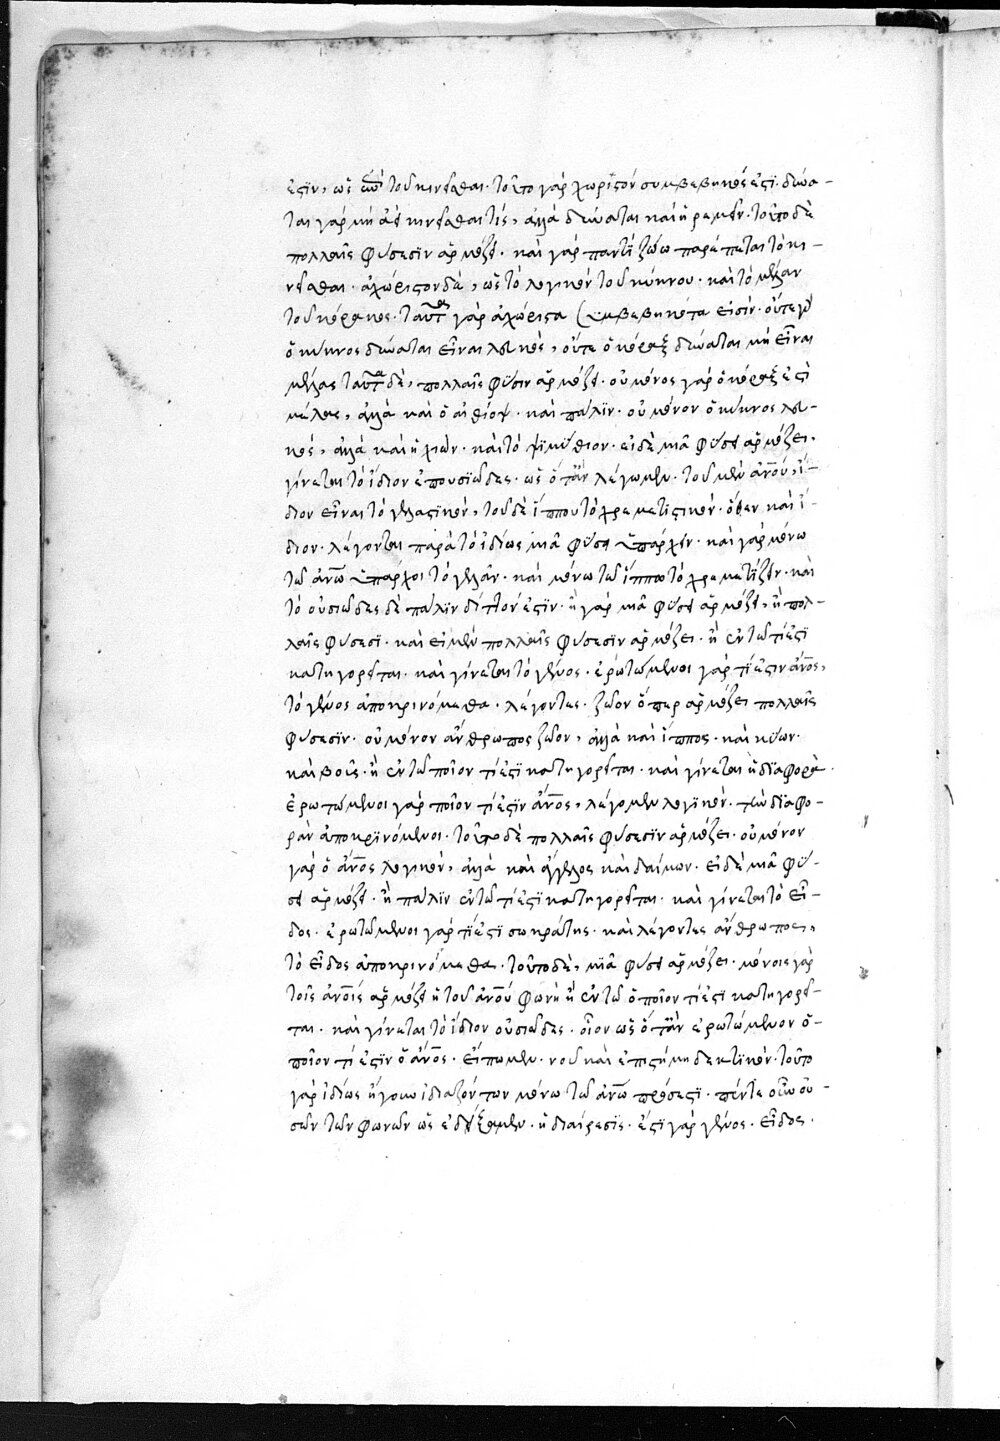 ἐστϊν, ὡς ἐπὶ τοῦ κινεῖσθαι· τοῦτο γὰρ χωριστὸν συμβεβηκός ἐστϊ· δύνα-
ται γὰρ μὴ ἀεὶ κινεῖσθαι τίς, ἀλλὰ δύναται καὶ ἠρεμεῖν· τοῦτο δὲ
πολλαῖς φύσεσϊν ἁρμόζει· καὶ γὰρ παντϊ ζώω παρέπεται τὸ κι-
νεῖσθαι· ἀχώριστον δὲ, ὡς τὸ λογικὸν τοῦ κύκνου· καὶ τὸ μέλαν
τοῦ κόρακος· ταῦτα γὰρ ἀχώριστα συμβεβηκότα εἰσὶν· οὔτε γὰρ
ὁ κύκνος δύναται εἶναι λευκὸς, οὔτε ὁ κόραξ δύναται μὴ εἶναι
μέλας ταῦτα δὲ, πολλαῖς φύσιν ἁρμόζει· οὐ μόνος γὰρ ὁ κόραξ ἐστὶ
μέλας, ἀλλὰ καὶ ὁ αἰθίοψ· καὶ πάλϊν· οὐ μόνον ὁ κύκνος λευ-
κός, ἀλλὰ καὶ ἡ χιών· καὶ τὸ ψϊμύθιον· εἰ δὲ μιᾶ φύσει ἁρμόζει,
γίνεται τὸ ἴδιον ἐπουσϊῶδες· ὡς ὅταν λέγωμεν· τοῦ μὲν ἀνου, ἴ-
διον εἶναι τὸ γελαστϊκὸν, τοῦ δὲ ἵππου τὸ χρεμετϊστικόν· ὅθεν καὶ ἴ-
διον· λέγονται παρὰ τὸ ἰδίως μιᾶ φύσει ὑπάρχειν· καὶ γὰρ μόνω
τῶ ἀνω ὑπάρχοι τὸ γελᾶν· καὶ μόνω τῶ ἵππω τὸ χρεμετϊζειν· καὶ
τὸ οὐσιῶδες δὲ πάλϊν διττόν ἐστϊν· ἢ γὰρ μιᾶ φύσει ἁρμόζει, ἢ πολ-
λαῖς φύσεσϊ· καὶ εἰ μὲν πολλαῖς φύσεσϊν ἁρμόζει· ἢ ἐν τῶ τί ἐστϊ
κατηγορεῖται· καὶ γίνεται τὸ γένος· ἐρωτώμενοι γὰρ τϊ ἐστιν ἀνος,
τὸ γένος ἀποκρινόμεθα· λέγοντες· ζῶον ὅπερ ἁρμόζει πολλαῖς
φύσεσϊν· οὐ μόνον ἄνθρωπος ζῶον, ἀλλὰ καὶ ἵππος· καὶ κύων·
καὶ βοῦς· ἢ ἐν τῶ ποῖον τί ἐστϊ κατηγορεῖται· καὶ γίνεται ἡ δϊαφορὰ·
ἐρωτώμενοι γὰρ ποῖον τί ἐστϊν ἀνος, λέγομεν λογϊκὸν· τὴν δϊαφο-
ρὰν ἀποκρϊνόμενοι· τοῦτο δὲ πολλαῖς φύσεσϊν ἁρμόζει· οὐ μόνον
γὰρ ὁ ἀνος λογικὸν, ἀλλὰ καὶ ἄγγελος καὶ δαίμων· εἰ δὲ μιᾶ φύ-
σει ἁρμόζει· ἢ πάλϊν ἐν τῶ τί ἐστϊ κατηγορεῖται· καὶ γίνεται τὸ εἶ-
δος· ἐρωτώμενοι γὰρ τϊ ἐστϊ σωκράτης· καὶ λέγοντες ἄνθρωπος,
τὸ εἶδος ἀποκρινόμεθα· τοῦτο δὲ, μϊᾶ φύσει ἁρμόζει· μόνοις γὰρ
τοῖς ἀνοις ἁρμόζει ἡ τοῦ ἀνου φωνὴ ἢ ἐν τῶ ὁποῖον τί ἐστϊ κατηγορεῖ-
ται· καὶ γίνεται τὸ ἴδιον οὐσιῶδες· οἷον ὡς ὅταν ἐρωτώμενον ὁ-
ποῖον τί ἐστϊν ὁ ἀνος· εἴπωμεν· νοῦ καὶ ἐπιστήμη δεκτϊκόν· τοῦτο
γὰρ ἰδίως ἤγουν ἰδιαζόντων μόνω τῶ ἀνω πρόσεστϊ· πέντε οὖν οὐ-
σῶν τῶν φωνῶν ὡς ἐδείξαμεν· ἡ διαίρεσϊς· ἐστϊ γὰρ γένος· εἶδος·